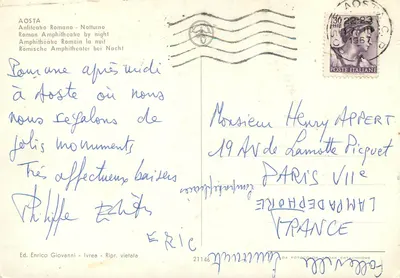 AOSTA
Anfiteatro Romano - Notturno
Roman Amphitheatre by night
Amphithéâtre Romain la nuit
Römisches Amphitheater bei Nacht
POSTE ITALIANE
1967
après midi
à Aoste où nous
nous régalons de
jolis monuments
Très affectueux baisers
Philippe
ERIC
Monsieur Henry APPERT
19 AV de Lamotte Picquet
PARIS VIIe
LAMPADEPHORE
FRANCE
Ed. Enrico Giovanni - Ivrea - Ripr. vietata